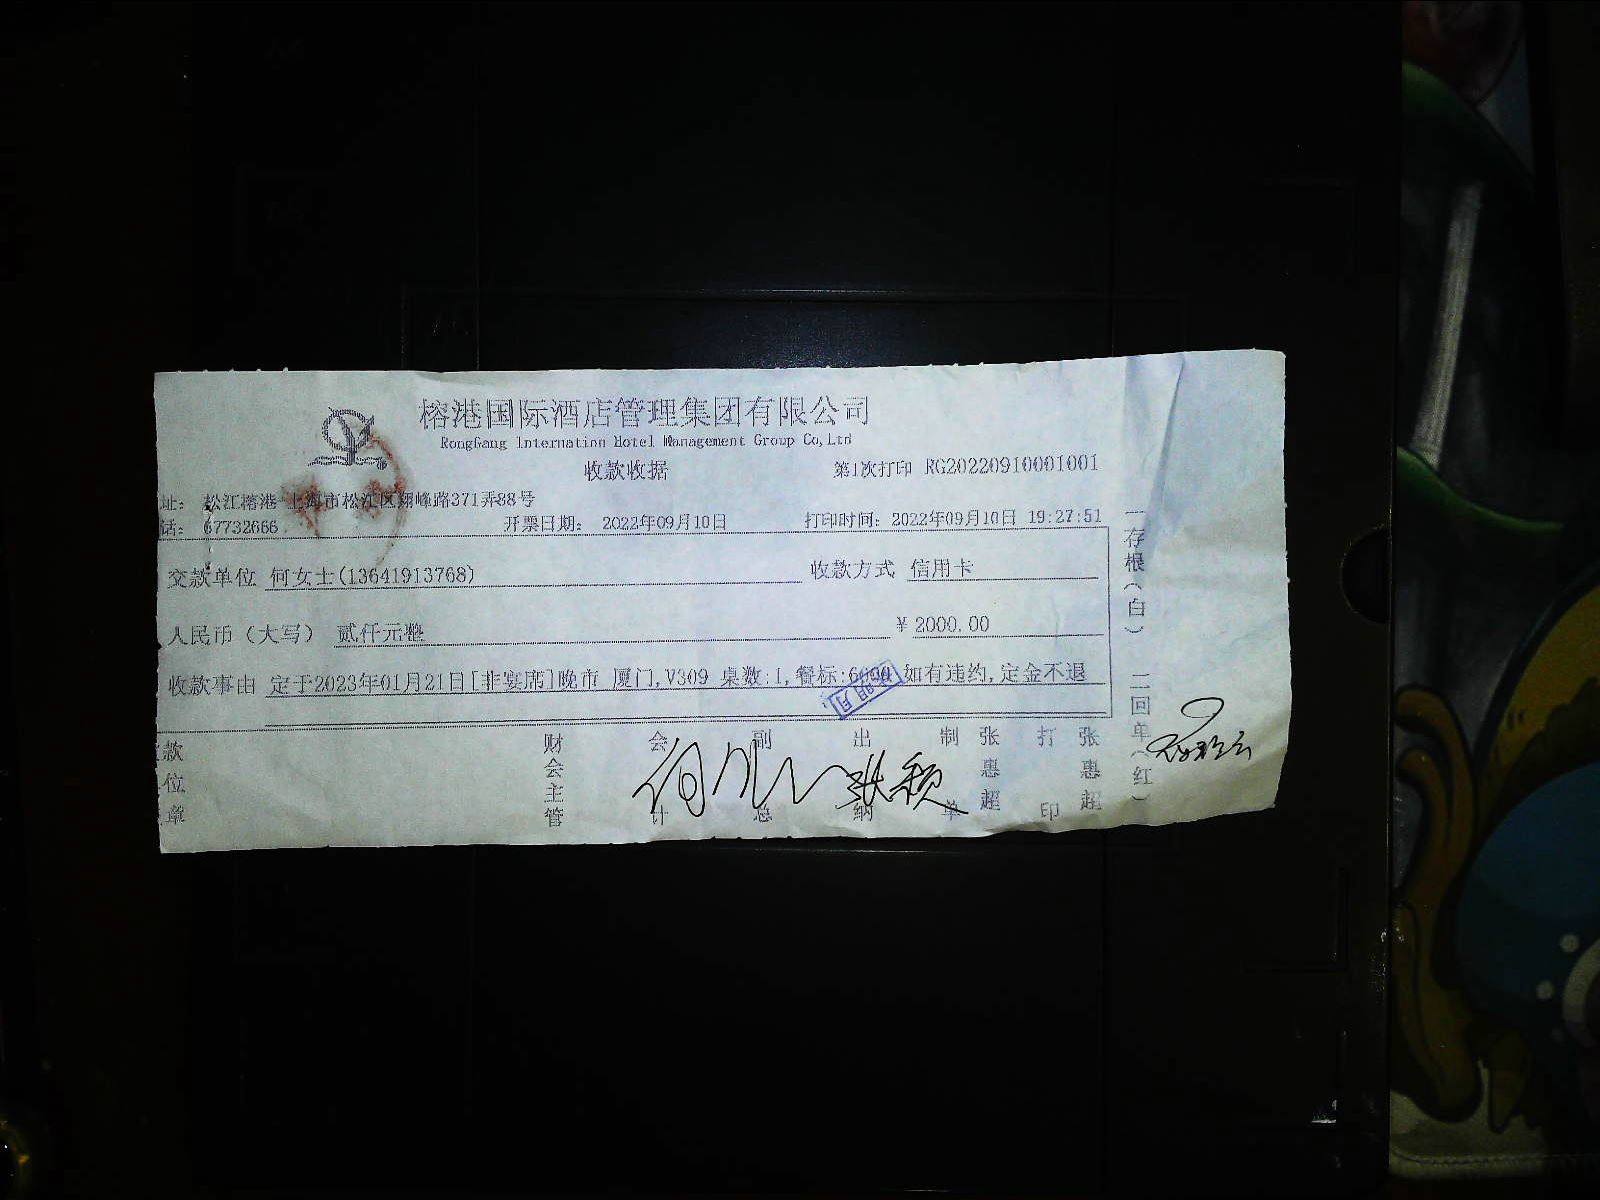 榕港国际酒店管理集团有限公司
RongGang Internation Hotel Management Group Co,Ltd
收款收据
第1次打印 RG20220910001001
址： 松江榕港 上海市松江区翔峰路371弄88号
话： 67732666
开票日期： 2022年09月10日
打印时间：2022年09月10日 19:27:51
交款单位 何女士(13641913768)
收款方式 信用卡
人民币（大写） 贰仟元整
￥2000.00
收款事由 定于2023年01月21日[非宴席]晚市 厦门,V309 桌数:1,餐标: 如有违约,定金不退
款位章
财会主管
会计
副总
出纳
张颖
制单
张惠超
打印
张惠超
一存根（白） 二回单（红）